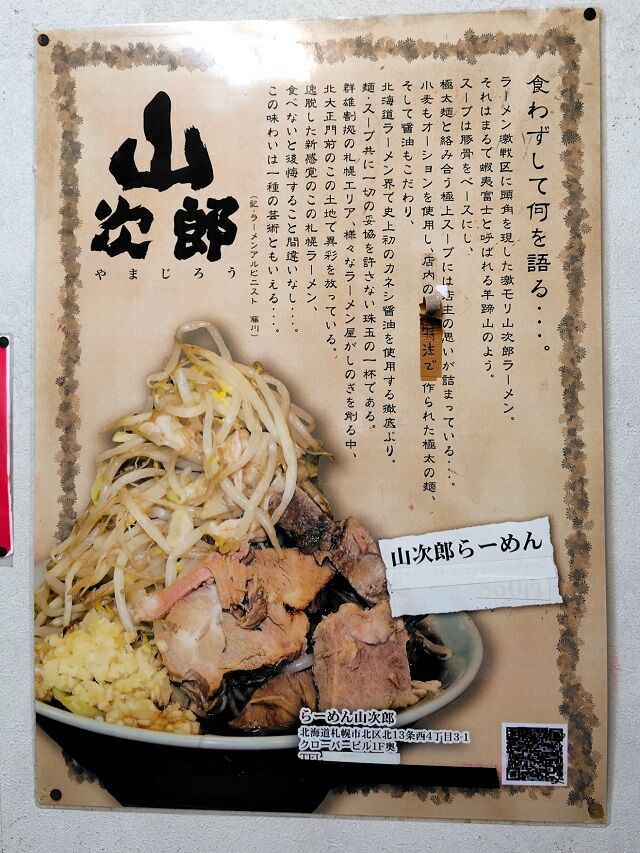 食わずして何を語る・・・。
ラーメン激戦区に頭角を現した激モリ山次郎ラーメン。
それはまるで蝦夷富士と呼ばれる羊蹄山のよう。
スープは豚骨をベースにし、
極太麺と絡み合う極上スープには店主の思いが詰まっている・・・。
小麦もオーションを使用し、店内の 特注で 作られた極太の麺、
そして醤油もこだわり、
北海道ラーメン界で史上初のカネシ醤油を使用する徹底ぶり。
麺・スープ共に一切の妥協を許さない珠玉の一杯である。
群雄割拠の札幌エリア、様々なラーメン屋がしのぎを削る中、
北大正門前のこの土地で異彩を放っている。
逸脱した新感覚のこの札幌ラーメン、
食べないと後悔すること間違いなし・・・。
この味わいは一種の芸術ともいえる・・・。
（記・ラーメンアルピニスト 蒲川）
山次郎
やまじろう
山次郎らーめん
らーめん山次郎
北海道札幌市北区北13条西4丁目3-1
クローバービル1F奥
TEL